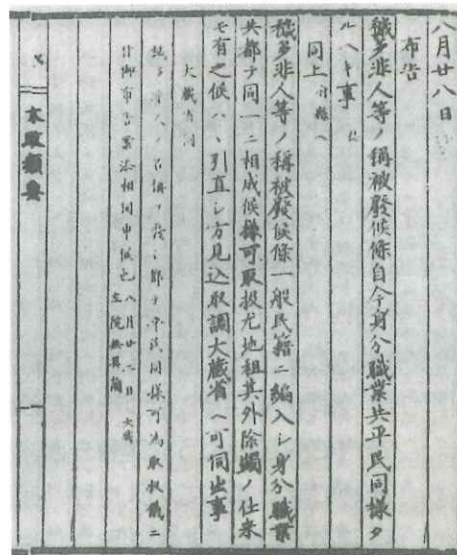 八月廿八日
布告
穢多非人等ノ稱被廢候條自今身分職業共平民同様タ
ルヘキ事
同上 府縣ヘ
穢多非人等ノ稱被廢候條一般民籍ニ編入シ身分職業
共都テ同一ニ相成候様可取扱尤地租其外除蠲ノ仕来
モ有之候ハヽ引直シ方見込取調大藏省ヘ可伺出事
大藏省
穢多非人ノ名稱ヲ廢シ都テ平民同様可為取扱儀ニ
付御布告案添相伺申候也 八月廿二日 大藏